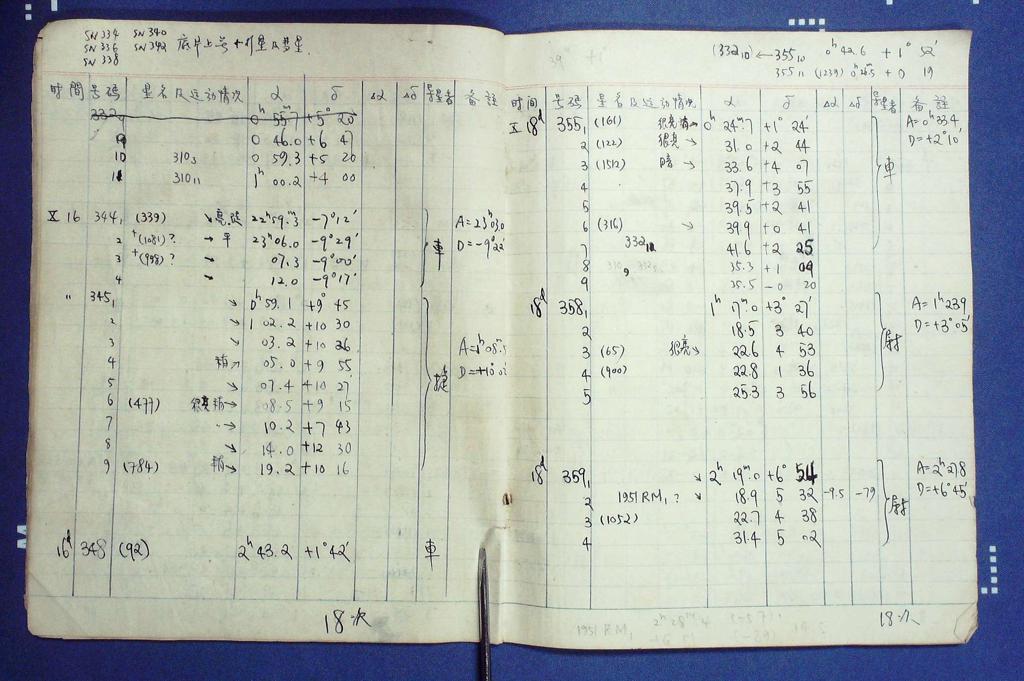 SN334 SN340
SN336 SN342 底片上无小行星及彗星
SN338
時間 号碼 星名及运动情况 α δ Δα Δδ 导星者 备註
332 0ʰ 55.ᵐ7 +5° 20'
9 0 46.0 +6 47
10 310₃ 0 59.3 +5 20
11 310₁₁ 1ʰ 00.2 +4 00
X 16 344₁ (339) ↘ 22ʰ59.ᵐ3 -7°12' 車 A=23ʰ03.0
2 +(1081)? → 平 23ʰ06.0 -9°29' D=-9°22'
3 +(998)? → 07.3 -9°00'
4 ↘ 12.0 -9°17'
" 345₁ ↘ 0ʰ59.1 +9° 45
2 ↘ 1 02.2 +10 30
3 ↘ 03.2 +10 26
4 稍↗ 05.0 +9 55 A=1ʰ08.5
5 ↘ 07.4 +10 27'
6 (477) 很亮稍→ 08.5 +9 15
7 → 10.2 +7 43
8 ↘ 14.0 +12 30
9 (784) 稍→ 19.2 +10 16
16ᵈ 348 (92) 2ʰ 43.2 +1°42' 車
18次
(332₁₀) ← 355₁₀ 0ʰ 42.6 +1° 52'
355₁₁ (1239) 0ʰ 26.5 +0 19
時间 号碼 星名及运动情况 α δ Δα Δδ 导星者 备註
X 18ᵈ 355₁ (161) 很亮稍→ 0ʰ 24.ᵐ7 +1° 24' 車 A=0ʰ33.4
2 (122) 很亮 ↘ 31.0 +2 44 D=+2°10'
3 (1512) 暗 ↘ 33.6 +4 07
4 37.9 +3 55
5 39.5 +2 41
6 (316) → 39.9 +0 41
7 332₁₁ 41.6 +2 25
8 35.3 +1 09
9 35.5 -0 20
18ᵈ 358₁ 1ʰ 17.ᵐ0 +3° 27' A=1ʰ23.9
2 18.5 3 40 D=+3°05'
3 (65) 很亮↘ 22.6 4 53
4 (900) 22.8 1 36
5 25.3 3 56
18ᵈ 359₁ 2ʰ 19.ᵐ0 +6° 54 A=2ʰ27.8
2 1951 RM₁ ? ↘ 18.9 5 32 -9.5 -79 D=+6°45'
3 (1052) 22.7 4 38
4 31.4 5 02
18次
1951 RM₁